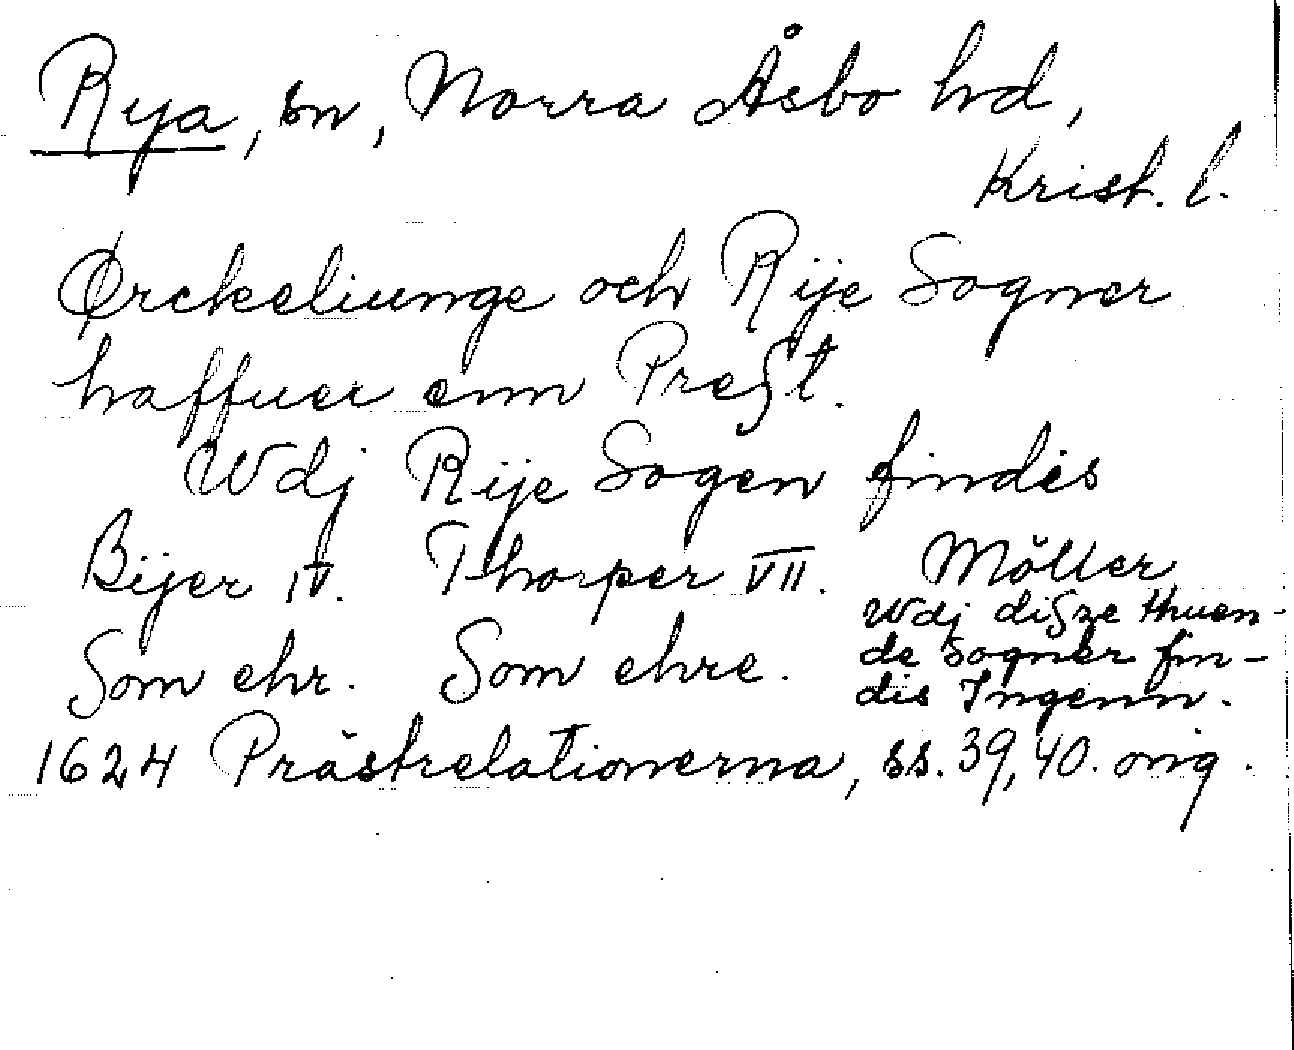 Rya, sn, Norra Åsbo hd,
Krist. l.
Ørckeliunge och Rije Sogner
haffuer enn Prest.
Wdj Rije Sogen findis
Bijer IV. Thorper VII. Möller
Wdj disze thuen-
de sogner fin-
dis Ingenn.
Som ehr. Som ehre.
1624 Prästrelationerna, ss. 39, 40. orig.